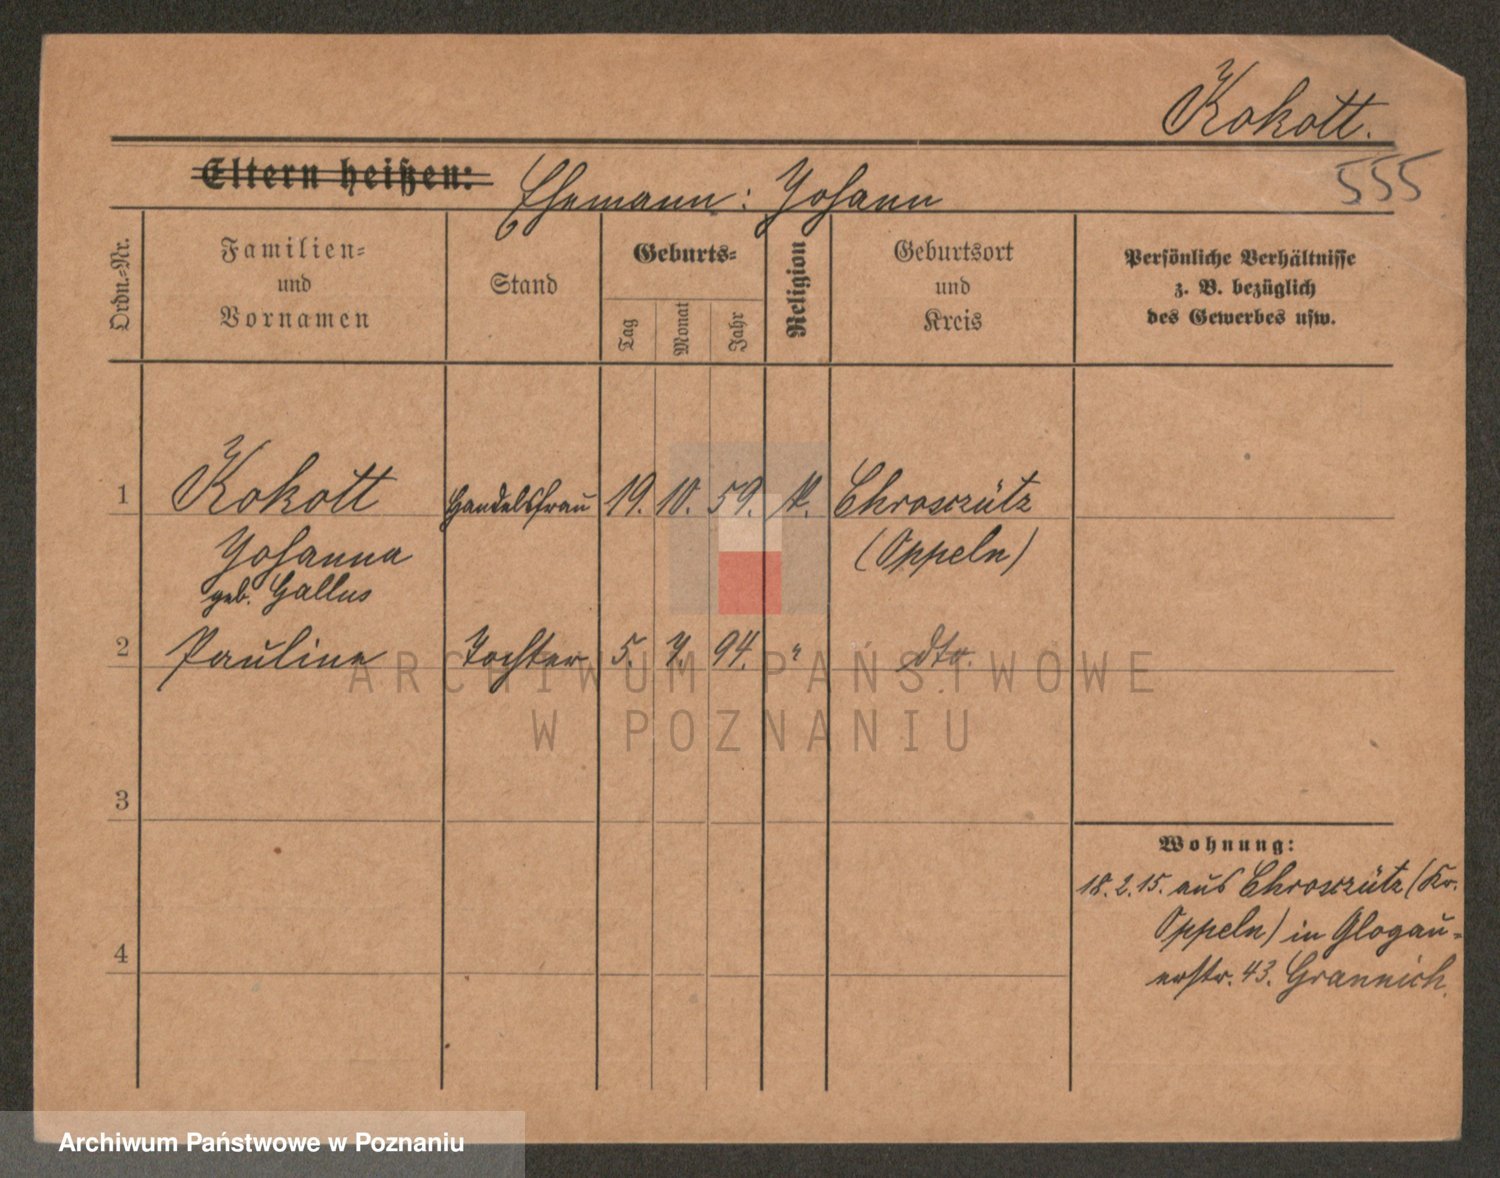 Kokott.
555
Eltern heißen:
Ehemann: Johann
Ordn.-Nr.
Familien-
und
Vornamen
Stand
Geburts-
Tag
Monat
Jahr
Religion
Geburtsort
und
Kreis
Persönliche Verhältnisse
z. B. bezüglich
des Gewerbes usw.
1 Kokott Handelsfrau 19. 10. 59. k. Chrosczütz
Johanna (Oppeln)
geb. Gallus
2 Pauline Tochter 5. 7. 94. " dto.
3
4
Wohnung:
18.2.15. aus Chrosczütz (Kr.
Oppeln) in Glogau-
erstr. 43.
ARCHIWUM PAŃSTWOWE
W POZNANIU
Archiwum Państwowe w Poznaniu